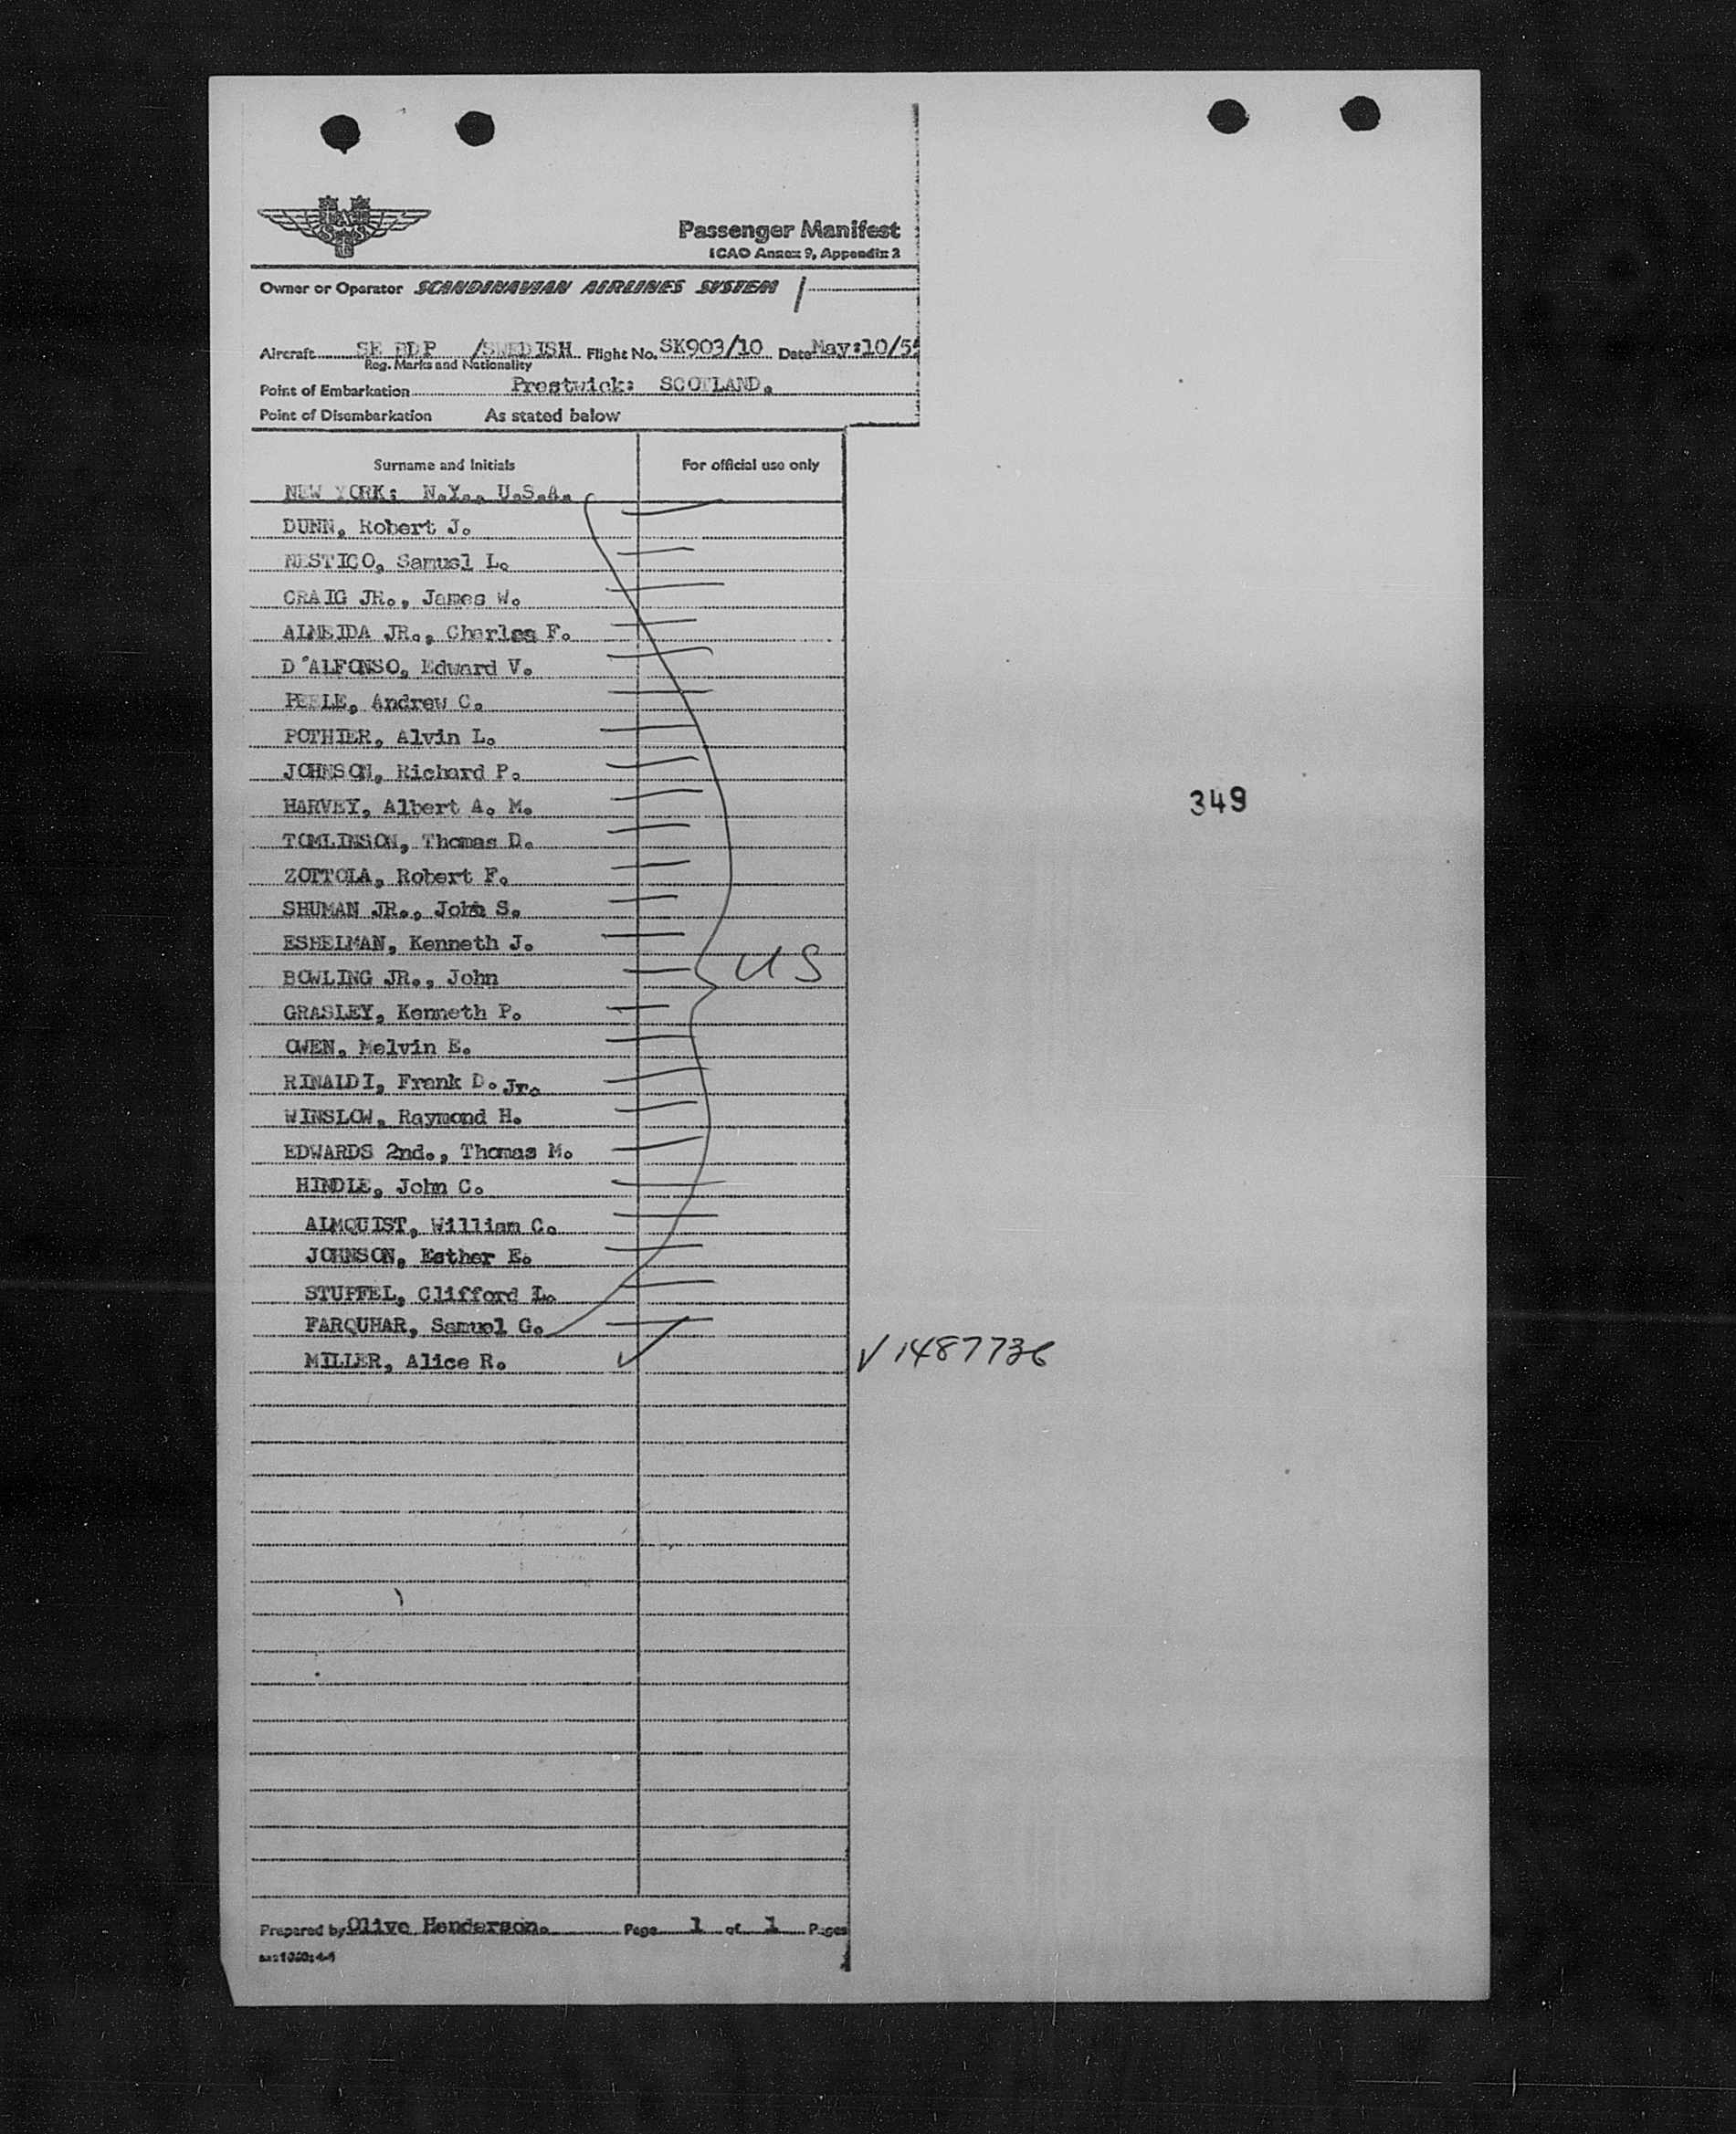 SAS
Passenger Manifest
ICAO Annex 9, Appendix 2
Owner or Operator SCANDINAVIAN AIRLINES SYSTEM /
Aircraft SE BDP /SWEDISH Flight No. SK903/10 Date May:10/55
Reg. Marks and Nationality
Point of Embarkation Prestwick: SCOTLAND.
Point of Disembarkation As stated below
Surname and Initials For official use only
NEW YORK: N.Y., U.S.A.
DUNN, Robert J.
NESTICO, Samuel L.
CRAIG JR., James W.
ALMEIDA JR., Charles F.
D'ALFONSO, Edward V.
PEELE, Andrew C.
POTHIER, Alvin L.
JOHNSON, Richard P.
HARVEY, Albert A. M.
349
TOMLINSON, Thomas D.
ZOTTOLA, Robert F.
SHUMAN JR., John S.
ESHELMAN, Kenneth J.
US
BOWLING JR., John
GRASLEY, Kenneth P.
OWEN, Melvin E.
RINALDI, Frank D. Jr.
WINSLOW, Raymond H.
EDWARDS 2nd., Thomas M.
HINDLE, John C.
ALMQUIST, William C.
JOHNSON, Esther E.
STUPFEL, Clifford L.
FARQUHAR, Samuel G.
MILLER, Alice R. V 1487736
Prepared by Olive Henderson. Page 1 of 1 Pages